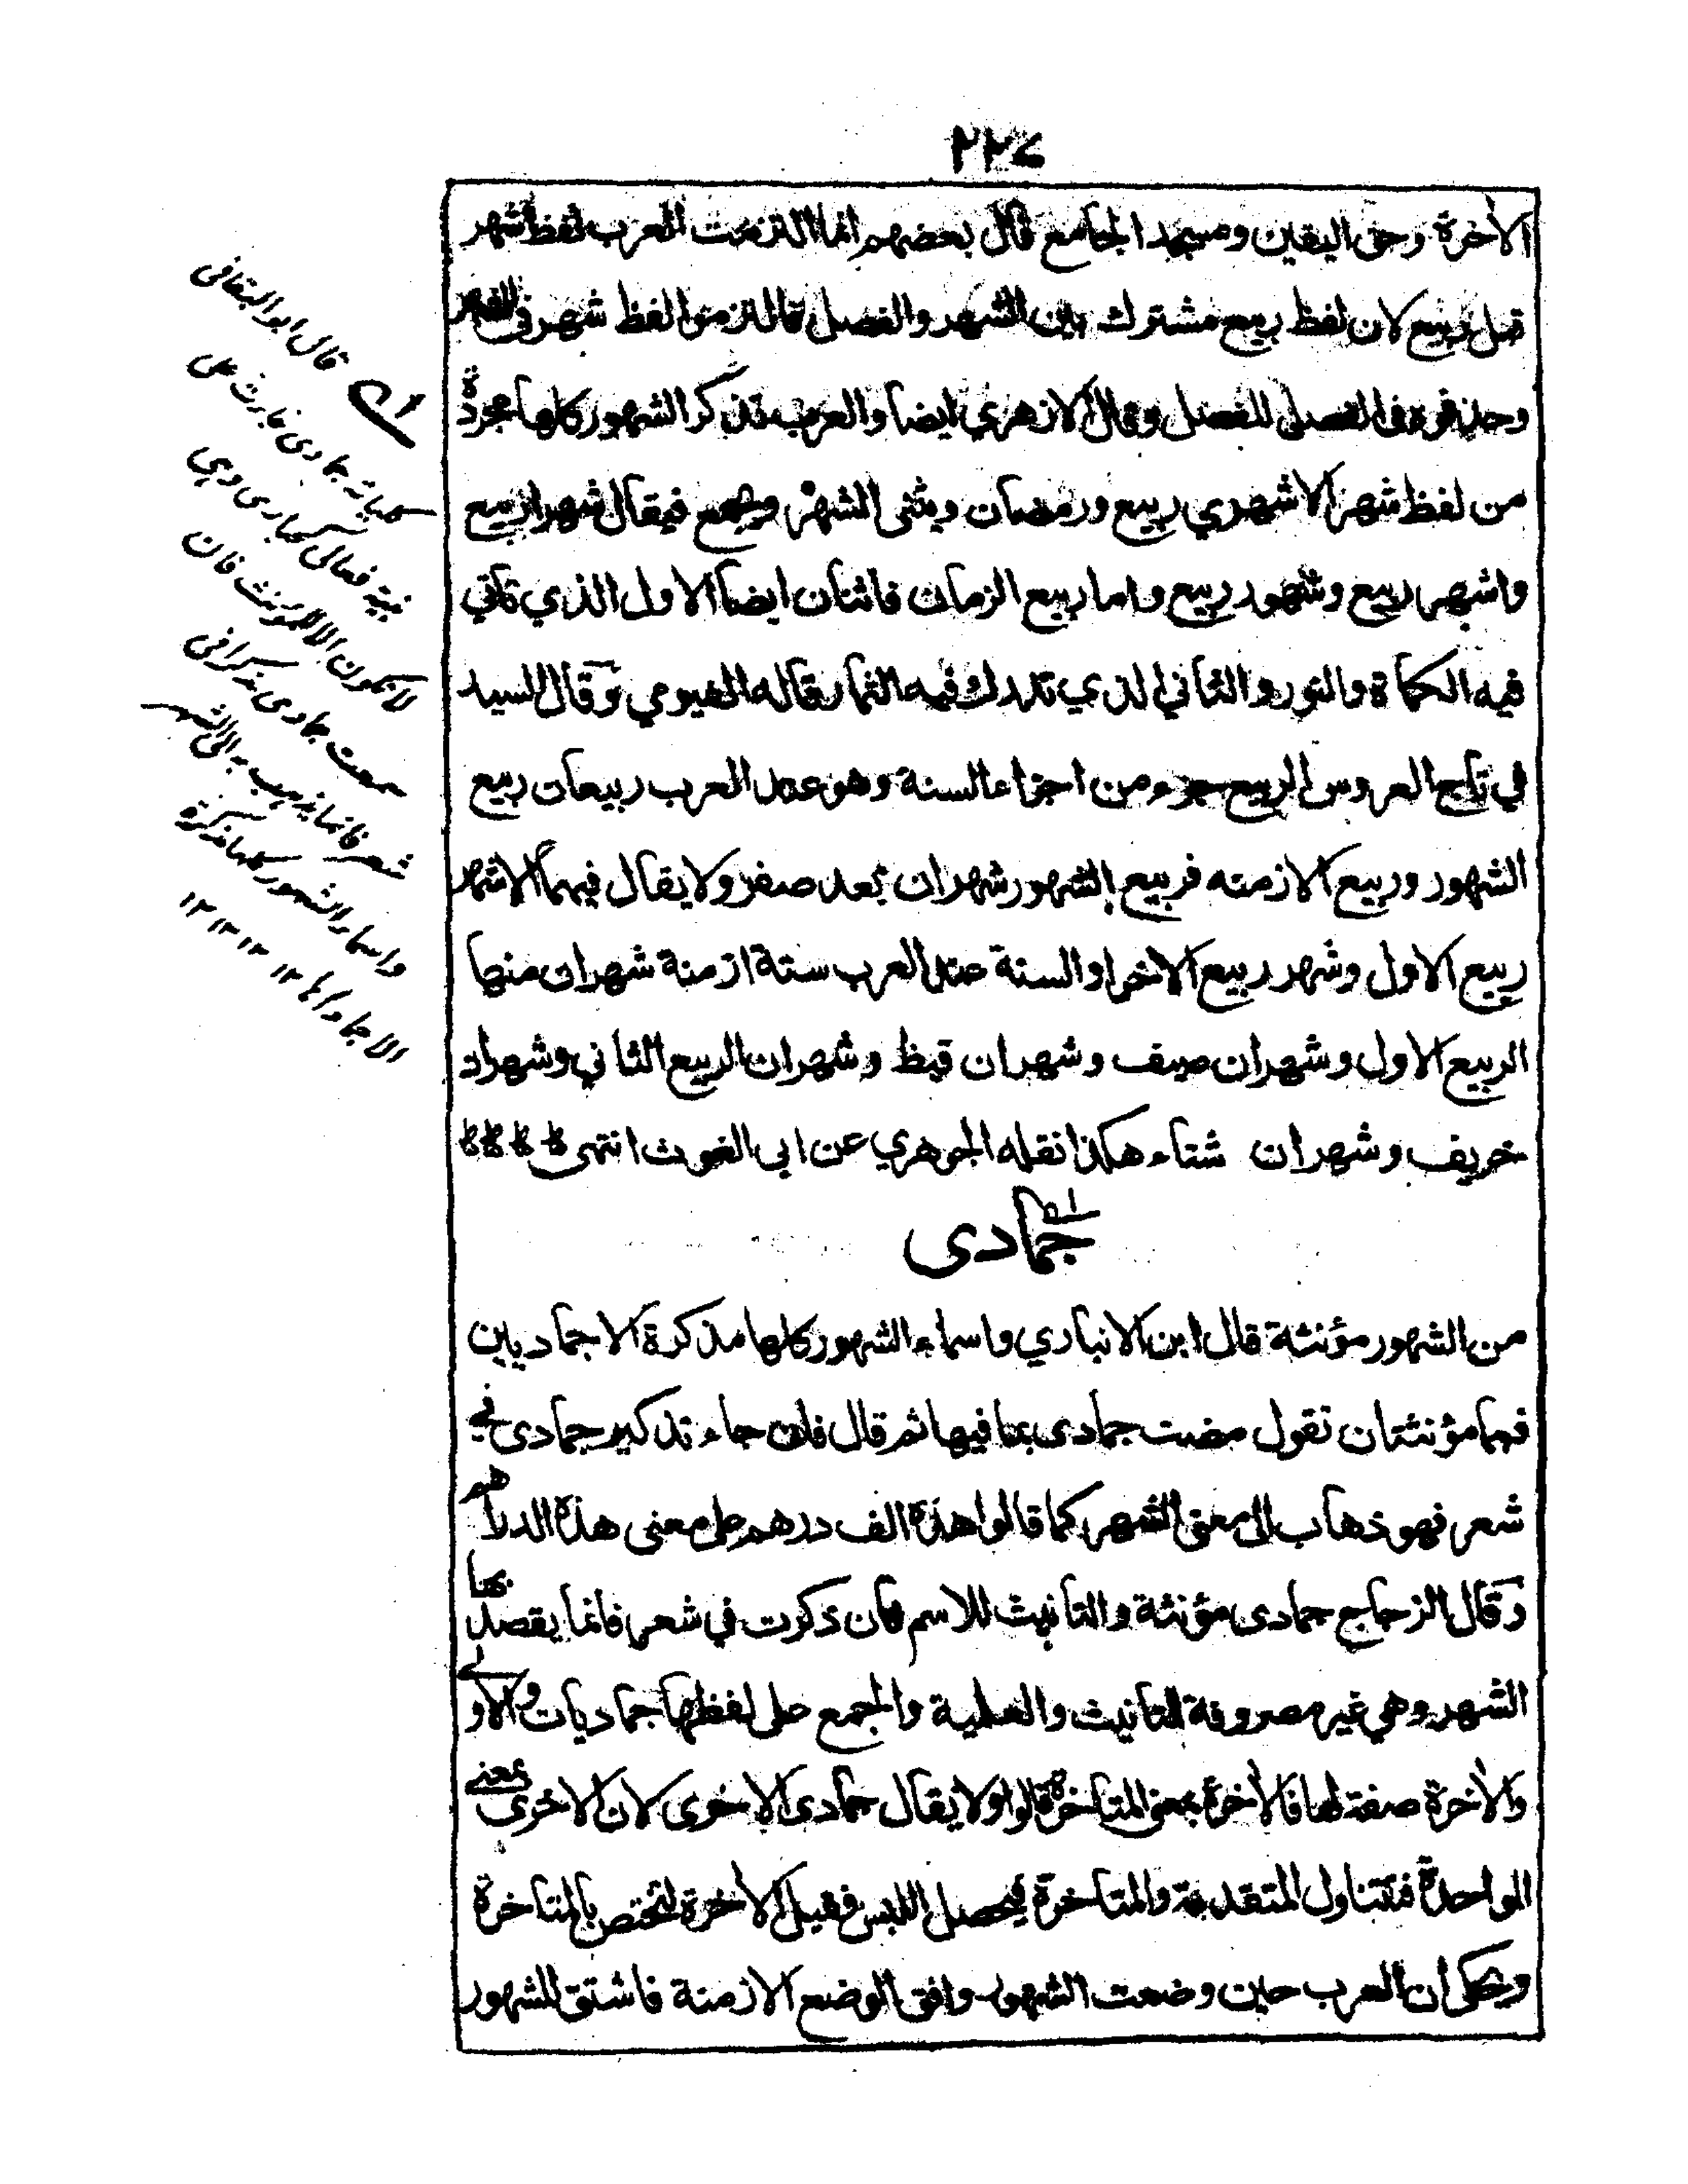 ٢٢٧
الاٰخرة وحق اليقين ومسجد الجامع قال بعضهم انما التزمت العرب لفظ شهر
قبل ربيع لان لفظ ربيع مشترك بين الشهر والفصل فالتزموا لفظ شهر في الشهر
وحذفوه في الفصل للفصل وقال الازهري ايضا والعرب تذكر الشهور كلها مجردة
من لفظ شهر الا شهري ربيع ورمضان ويثنى الشهر ويجمع فيقال شهرا ربيع
واشهر ربيع وشهور ربيع واما ربيع الزمان فاثنان ايضا الاول الذي تأتي
فيه الكمأة والنور والثاني الذي تدرك فيه الثمار قاله الفيومي وقال السيد
في تاج العروس الربيع جزء من اجزاء السنة وهو عند العرب ربيعان ربيع
الشهور وربيع الازمنه فربيع الشهور شهران بعد صفر ولا يقال فيهما الا شهر
ربيع الاول وشهر ربيع الاخر او السنة عند العرب ستة ازمنة شهران منها
الربيع الاول وشهران صيف وشهران قيظ وشهران الربيع الثاني وشهران
خريف وشهران شتاء هكذا نقله الجوهري عن ابي الغوث انتهى
جمادى
من الشهور مؤنثة قال ابن الانباري واسماء الشهور كلها مذكرة الا جماديين
فهما مؤنثتان تقول مضت جمادى بما فيها ثم قال فان جاء تذكير جمادى في
شعر فهو ذهاب الى معنى الشهر كما قالوا هذه الف درهم على معنى هذه الدراهم
وقال الزجاج جمادى مؤنثة والتانيث للاسم فان ذكرت في شعر فانما يقصد بها
الشهر وهي غير مصروفة للتانيث والعلمية والجمع على لفظها جماديات والاولى
والاٰخرة صفة لها فالاٰخرة بمعنى المتاخرة قالوا ولا يقال جمادى الاخرى لان الاخرى بمعنى
الواحدة فتتناول المتقدمة والمتاخرة فيحصل اللبس فقيل الاٰخرة لتختص بالمتاخرة
ويحكى ان العرب حين وضعت الشهور وافق الوضع الازمنة فاشتق للشهور
قال ابو البقا في
جمادى
فعالى
لا تكون الا للمؤنث فان
سمعت جمادى مذكرا في
شعر فانما يذهب به الى الشهر
واسماء الشهور كلها مذكرة
الا جمادا ١٢ ١٢ ١٢ ١٢